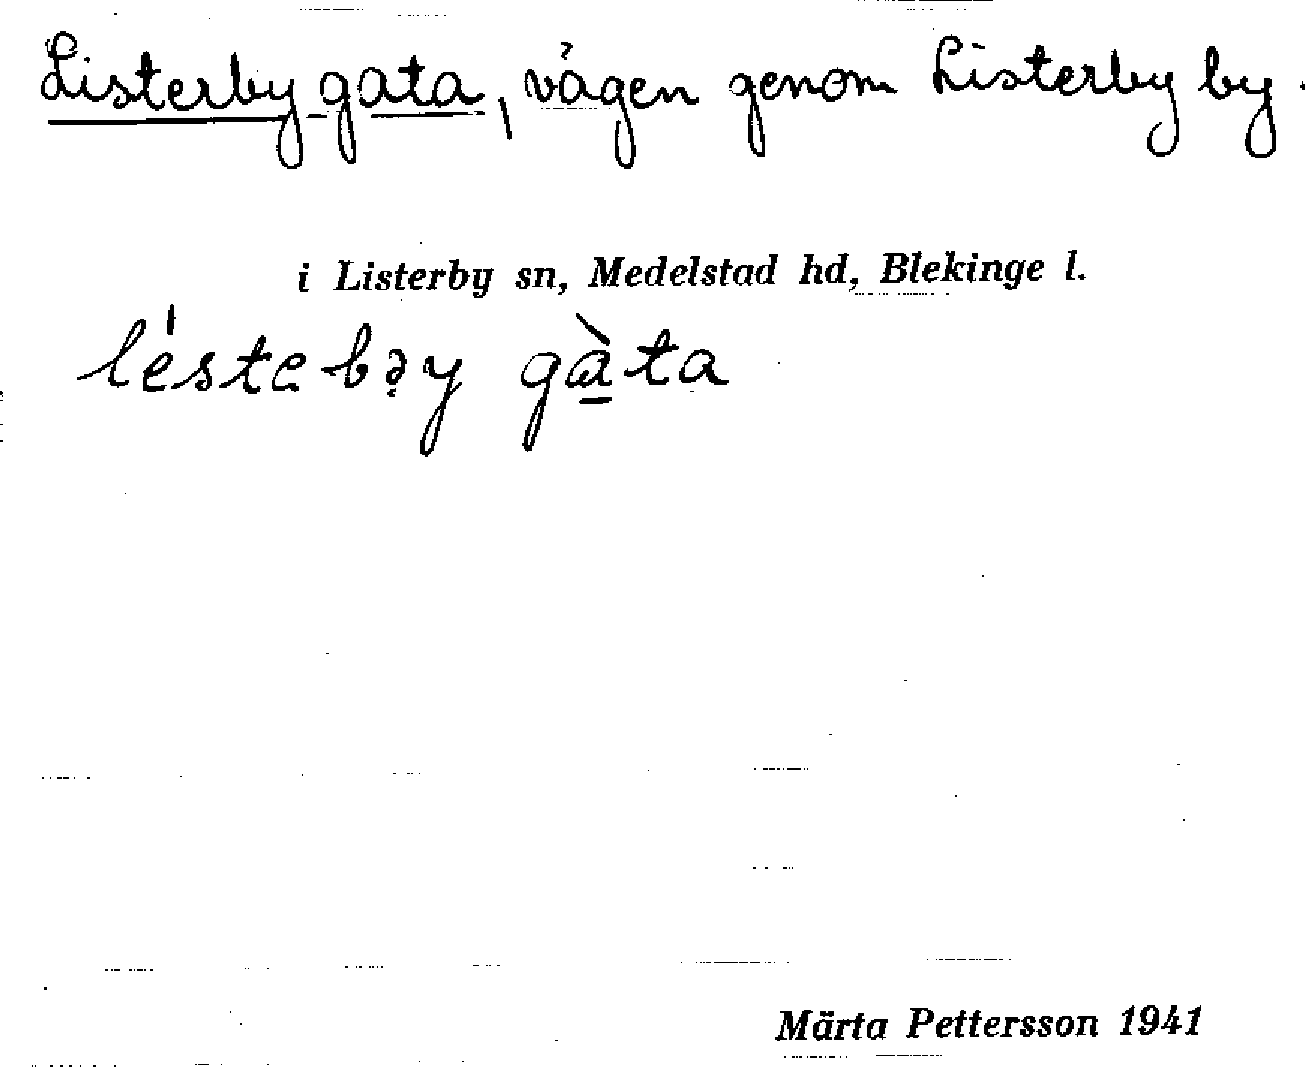 Listerby gata, vägen genom Listerby by.
i Listerby sn, Medelstad hd, Blekinge l.
léstebəy gàta
Märta Pettersson 1941